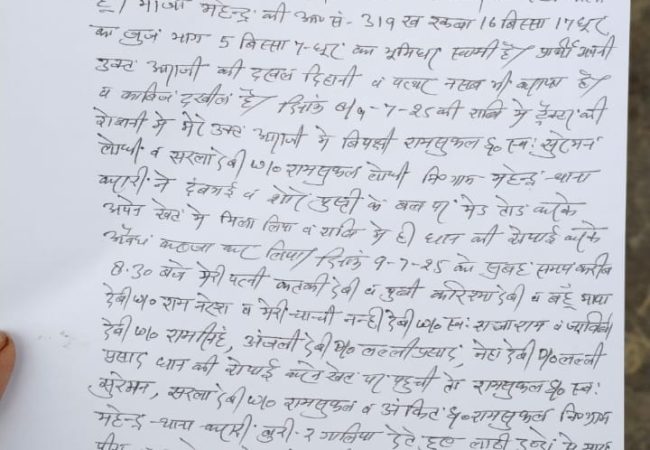 है। मौजा महेन्द्रं की आ०सं- 319 ख रकबा 16 बिस्सा 17 धूर
का जुज भाग 5 बिस्सा 7-धूर का भूमिधर स्वामी है। प्रार्थी अपनी
उक्त आराजी की दखल दिहानी व पत्थर नसब भी कराया है
व काबिज दखील है। दिनांक 8/9-7-25 की रात्रि में ट्रैक्टर की
रोशनी में मेरे उक्त आराजी में विपक्षी रामसुफल S/o स्व: सुरेमन
लोधी व सरला देवी W/o रामसुफल लोधी नि० ग्राम महेन्द्रं-थाना
ने दबंगई व के बल पर मेड़ तोड़ करके
अपने खेत में मिला लिया व रात्रि में ही धान की रोपाई करके
अवैध कब्जा कर लिया। दिनांक 9-7-25 को सुबह समय करीब
8.30 बजे मेरी पत्नी देवी व पुत्री करिश्मा देवी व बहू माया
देवी W/o राम नरेश व मेरी चाची नन्ही देवी W/o स्व: राजाराम व
देवी W/o रामसिंह, अंजली देवी D/o लल्ली प्रसाद, नेहा देवी D/o लल्ली
प्रसाद धान की रोपाई करने खेत पर पहुची तो रामसुफल S/o स्व:
सुरेमन, सरला देवी W/o रामसुफल व अंकित S/o रामसुफल नि० ग्राम
महेन्द्रं-थाना बुरी-2 गालिया देते हुए लाठी डन्डो से